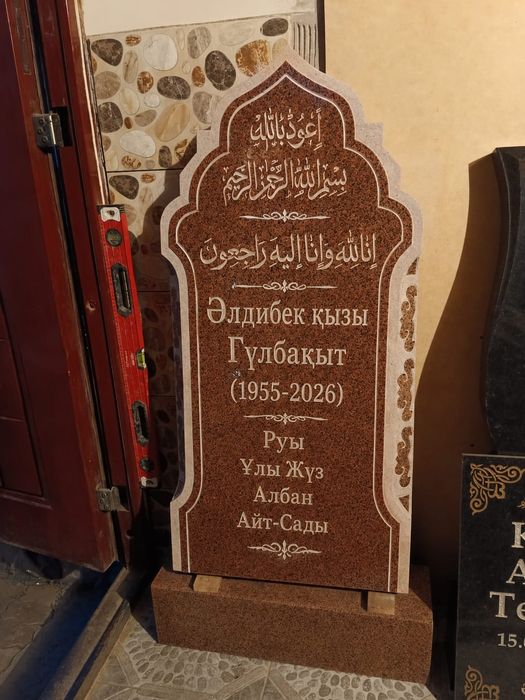 أَعُوذُ بِاللَّهِ
بِسْمِ اللَّهِ الرَّحْمَنِ الرَّحِيمِ
إِنَا لِلَّهِ وَإِنَا إِلَيْهِ رَاجِعُونَ
Әлдибек қызы
Гүлбақыт
(1955-2026)
Руы
Ұлы Жүз
Албан
Айт-Сады
15.0